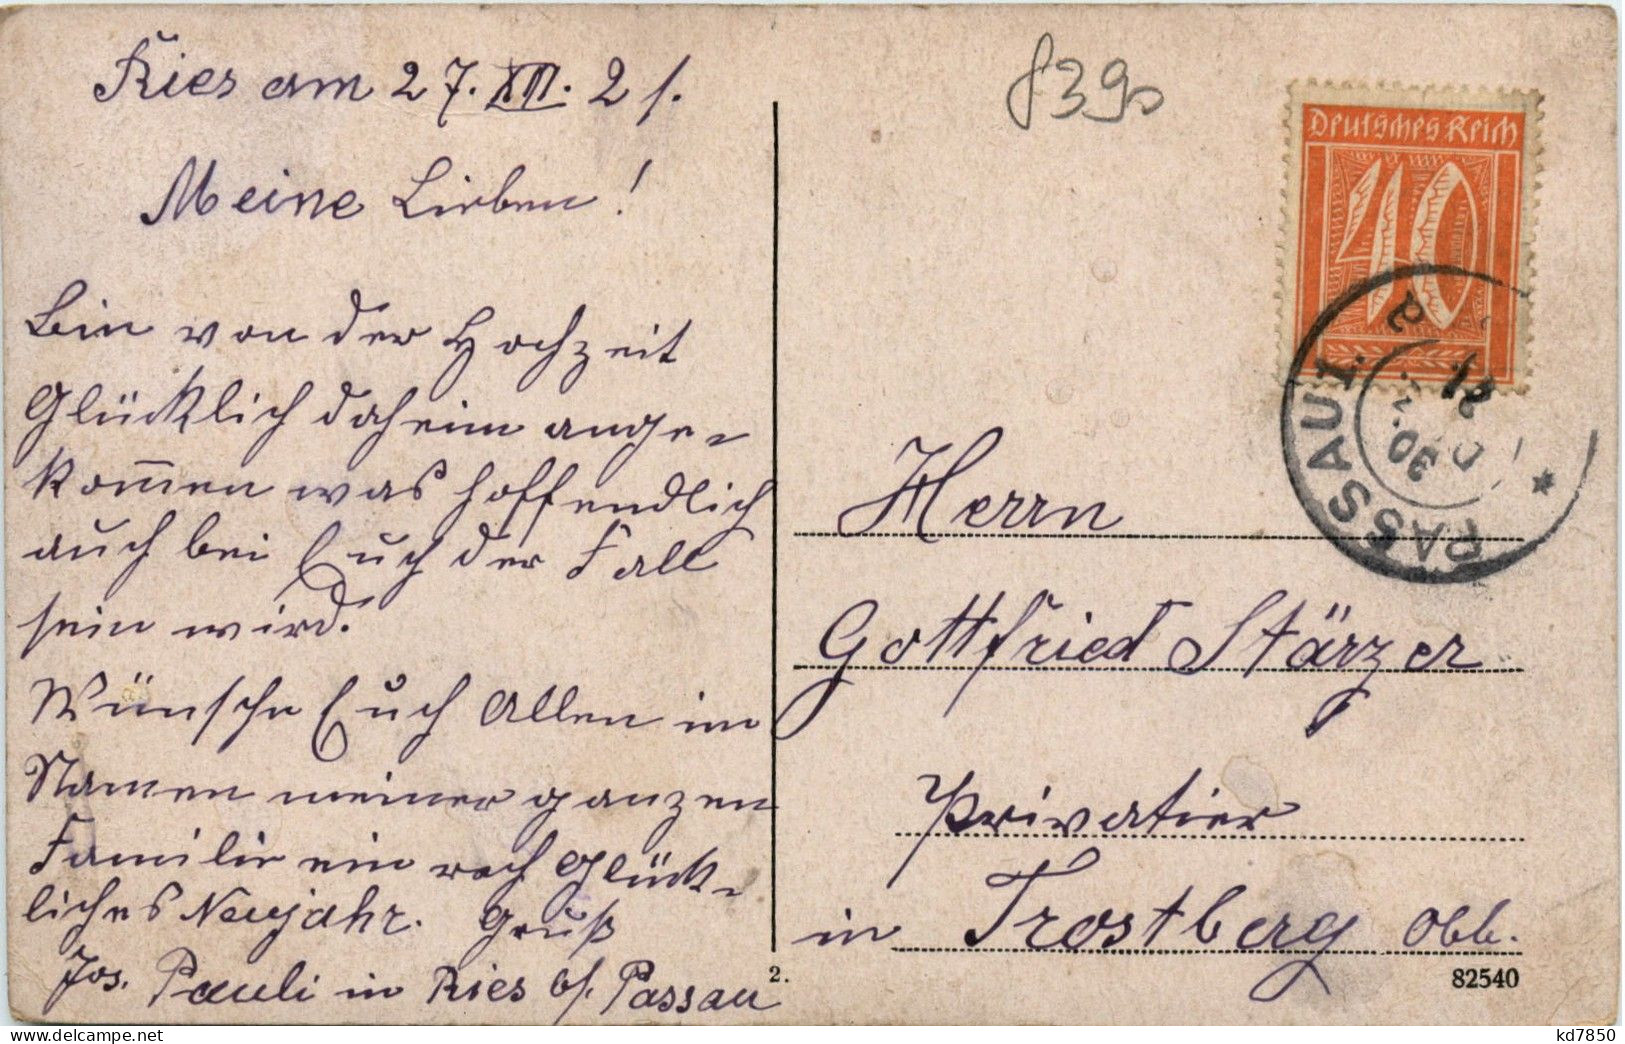 Ries am 27. XII. 21.
Meine Lieben!
Bin von der Hochzeit
Glücklich daheim ange-
kom̅en was hoffendlich
auch bei Euch der Fall
sein wird.
Wünsche Euch Allen im
Namen meiner ganzen
Familie ein rech Glück-
liches Neujahr. Gruß
Jos. Pauli in Ries b/. Passau
8390
Deutsches Reich
40
PASSAU 1.
30.
21
Herrn
Gottfried Stärzer
Privatier
in Trostberg Obb.
2.
82540
kd7850